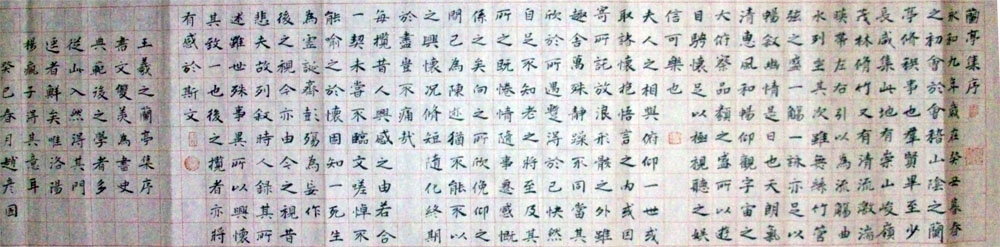 蘭亭集序
永和九年歲在癸丑暮春
之初會於會稽山陰之蘭
亭修稧事也群賢畢至少
長咸集此地有崇山峻嶺
茂林脩竹又有清流激湍
暎帶左右引以為流觴曲
水列坐其次雖無絲竹管
弦之盛一觴一詠亦足以
暢敘幽情是日也天朗氣
清惠風和暢仰觀宇宙之
大俯察品類之盛所以遊
目騁懷足以極視聽之娛
信可樂也
夫人之相與俯仰一世或
取諸懷抱悟言一室之內或因
寄所託放浪形骸之外雖
趣舍萬殊靜躁不同當其
欣於所遇暫得於己快然
自足不知老之將至及其
所之既惓情隨事遷感慨
係之矣向之所欣俛仰之
間已為陳迹猶不能不以
之興懷況脩短隨化終期
於盡豈不痛哉
每攬昔人興感之由若合
一契未嘗不臨文嗟悼不
能喻之於懷固知一死生
為虛誕齊彭殤為妄作
後之視今亦由今之視昔
悲夫故列敘時人錄其所
述雖世殊事異所以興懷
其致一也後之攬者亦將
有感於斯文
王羲之蘭亭集序
書文雙美為書史
典範後之學者多
從此入然得其門
逕者鮮矣唯洛陽
楊瘋子得其意耳
癸巳春月越彥國